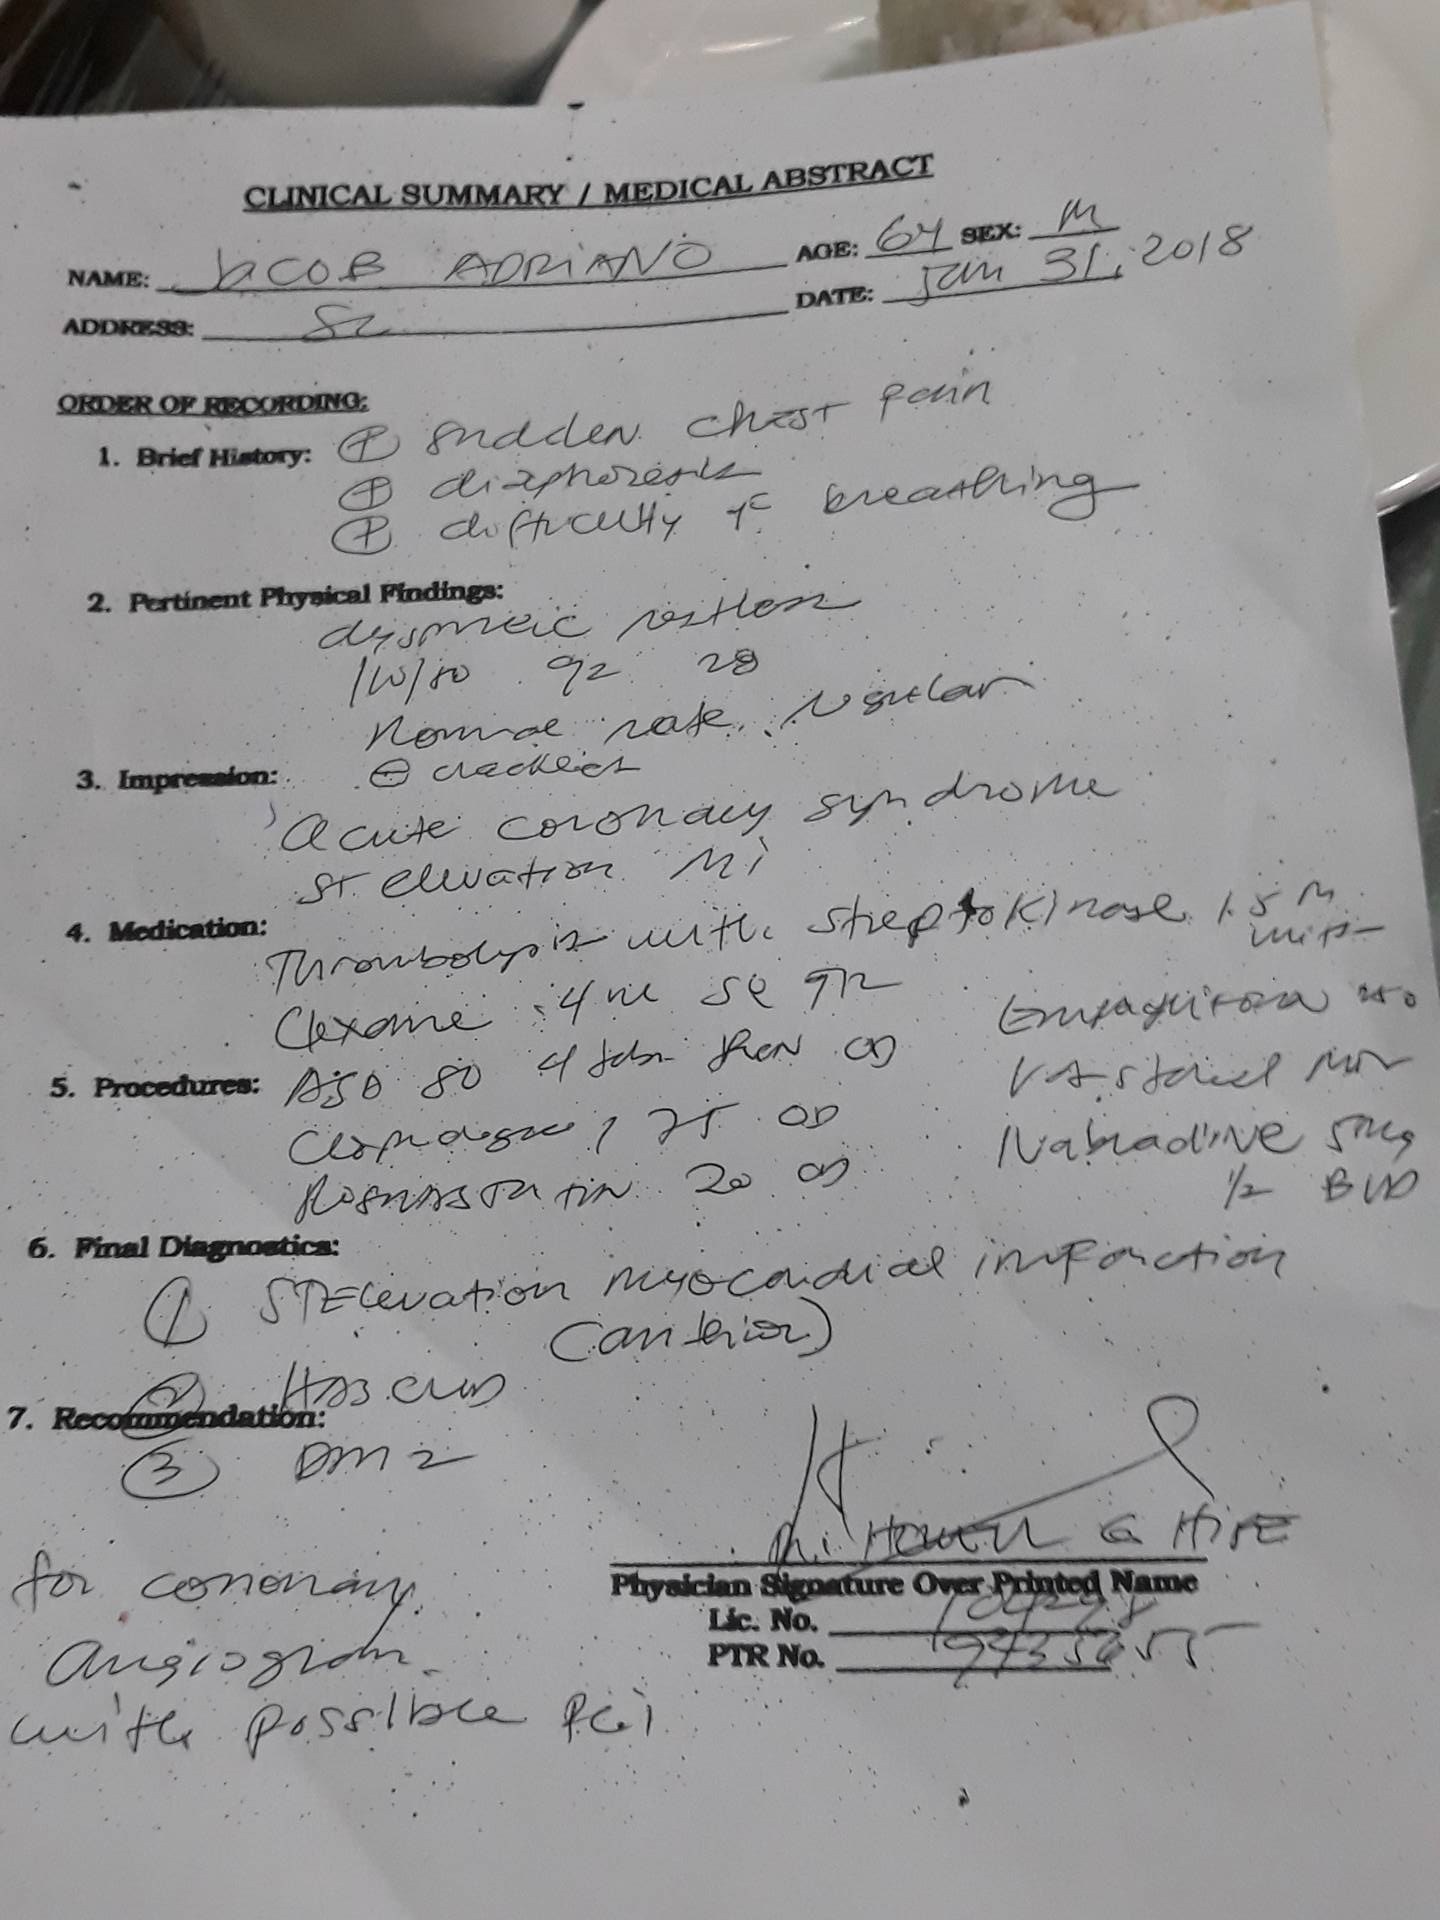 CLINICAL SUMMARY / MEDICAL ABSTRACT
NAME: JACOB ADRIANO AGE: 64 SEX: M
ADDRESS: SC DATE: Jan 31, 2018
ORDER OF RECORDING:
1. Brief History: ⊕ sudden chest pain
⊕ diaphoresis
⊕ difficulty of breathing
2. Pertinent Physical Findings:
dyspneic restless
/80 92 28
Normal rate, regular
3. Impression: ⊖ crackles
Acute coronary syndrome
ST elevation MI
4. Medication:
Thrombolysis with streptokinase 1.5 M
units
Clexane .4 SQ
5. Procedures: ASA 80 4 tabs then OD
75 OD Vastarel
Rosuvastatin 20 OD Ivabradine 5mg
1/2 BID
6. Final Diagnostics:
① ST Elevation myocardial infarction
(anterior)
② HASCVD
7. Recommendation:
③ DM 2
G
Physician Signature Over Printed Name
Lic. No.
PTR No.
for coronary
angiogram
with possible PCI